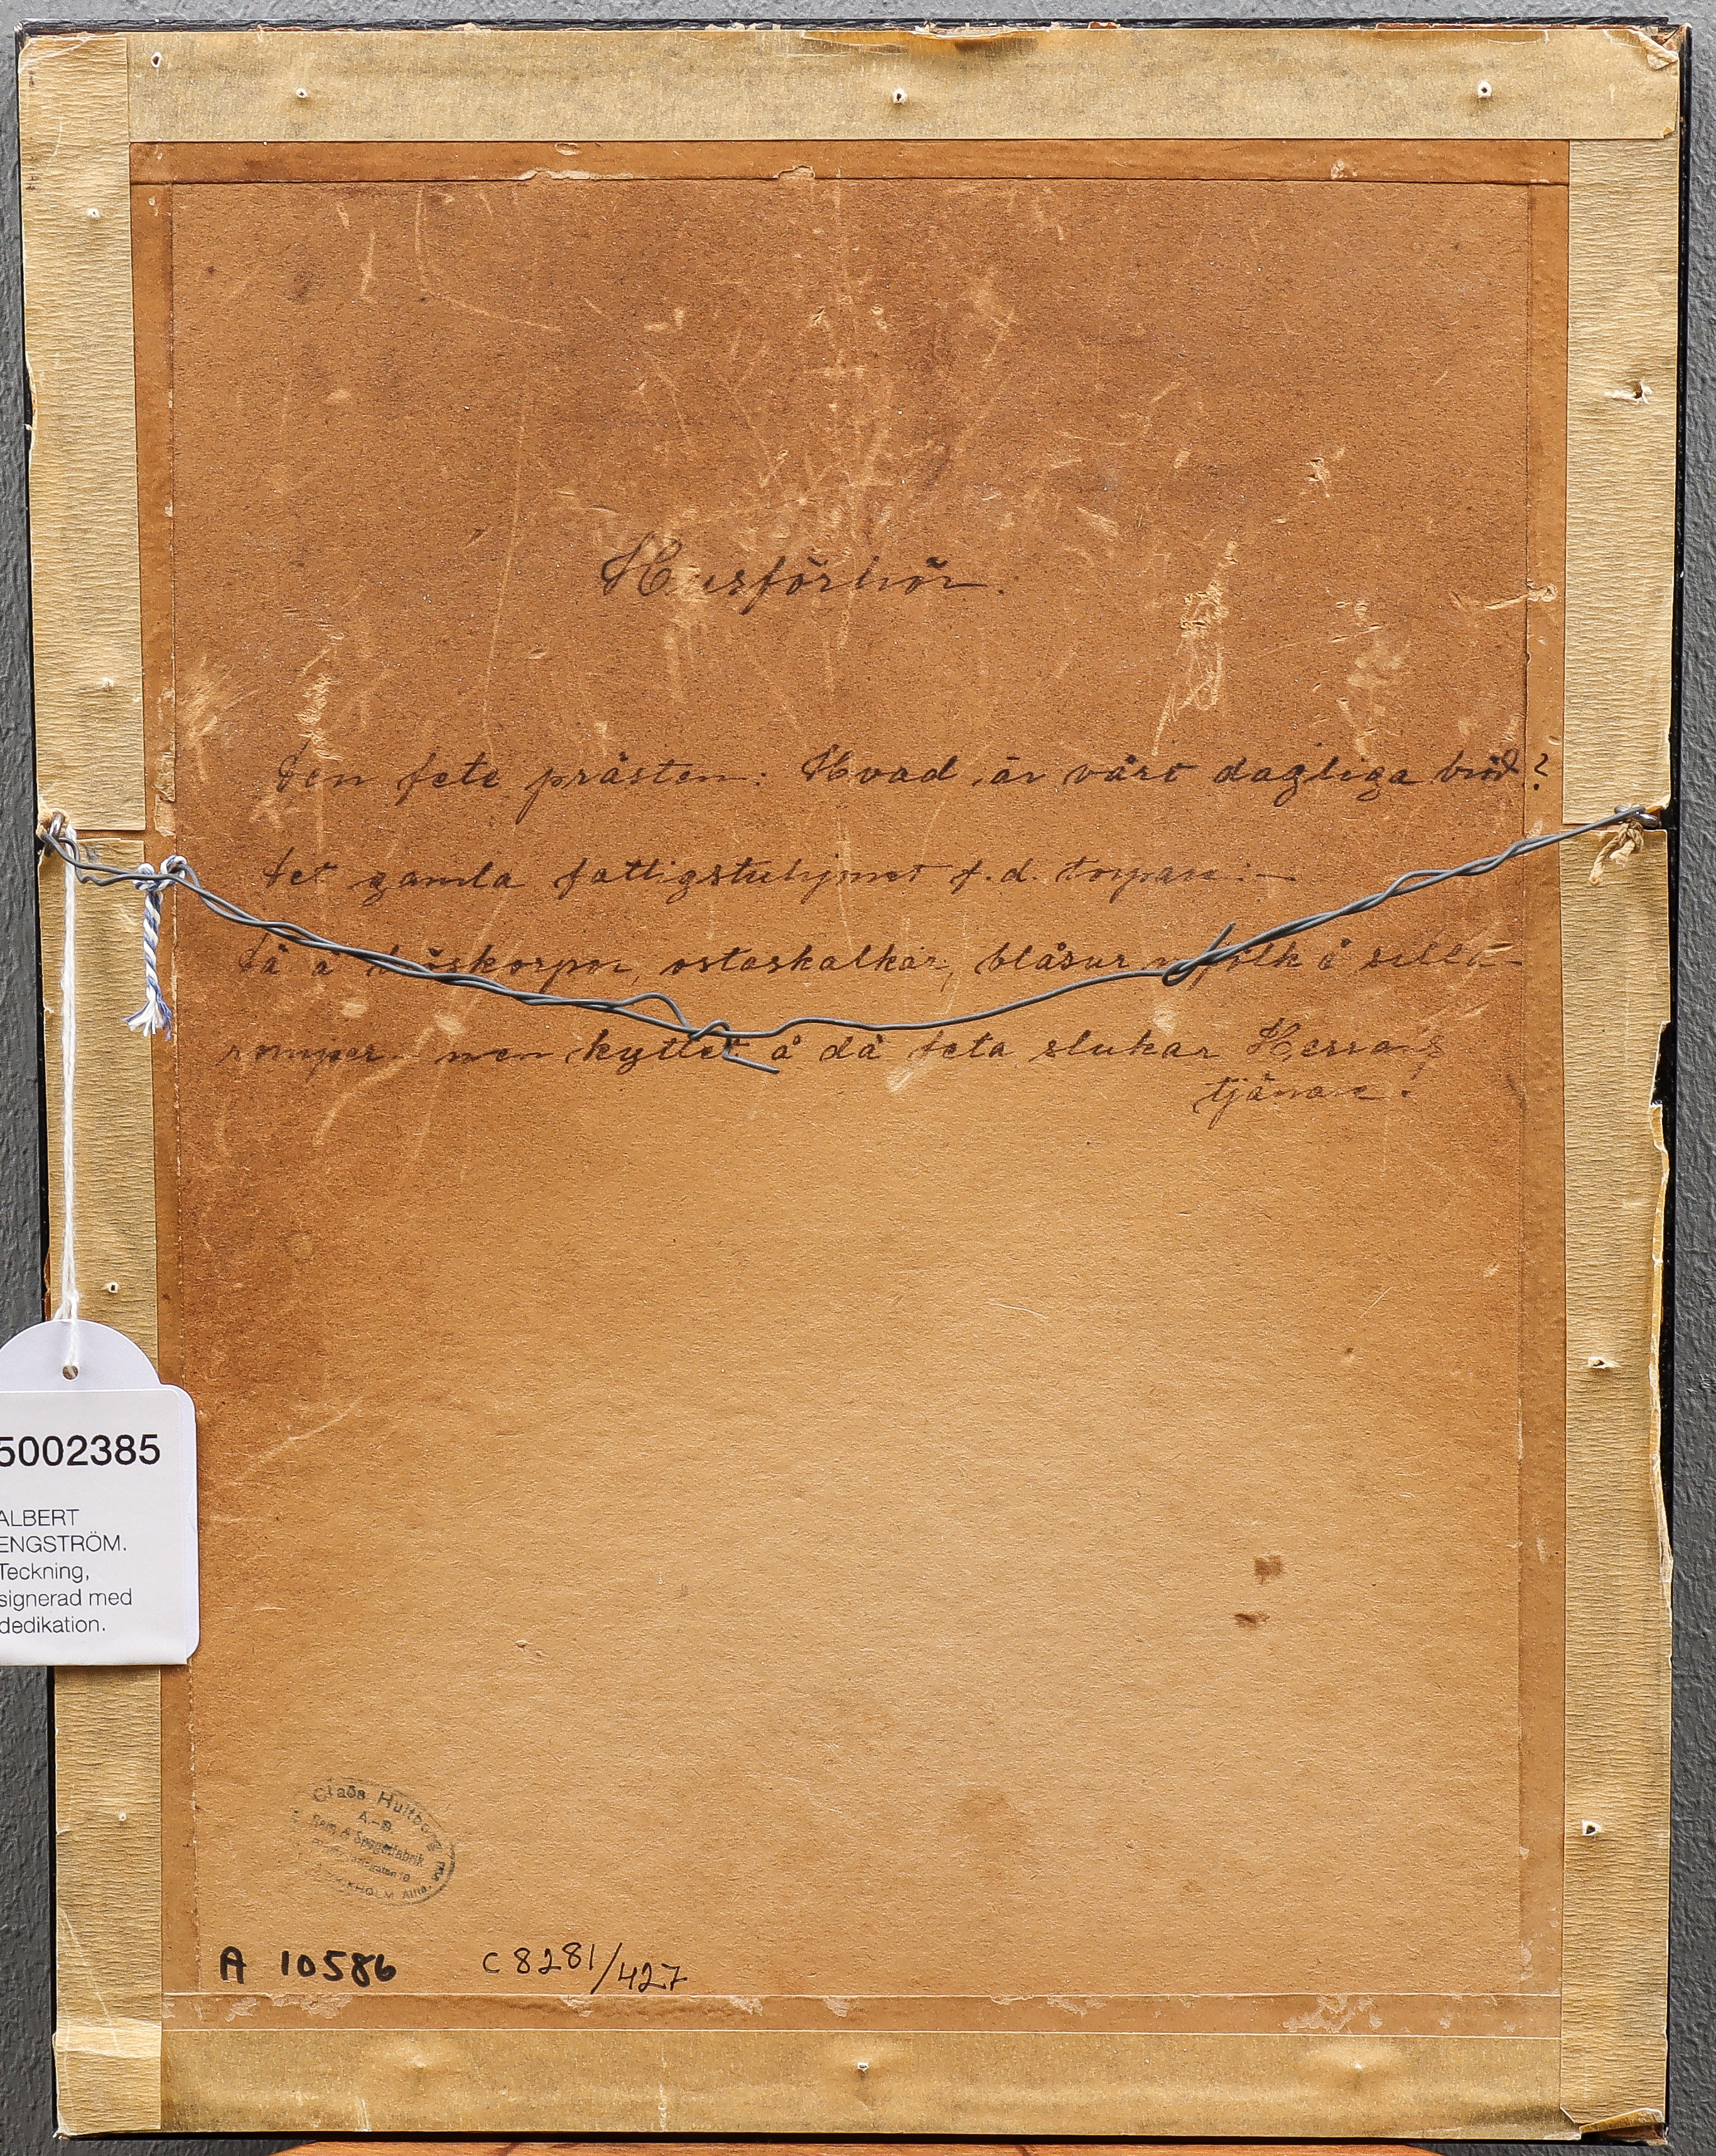 Husförhör.
Den fete prästen: Hvad är vårt dagliga bröd?
Det gamla fattigstuhjonet f.d. torpare:—
Dä ä bröskorpor, ostaskalkar, blåsur mjölk å silla-
rompen men kyttet å dä feta slukar Herrans
tjänare.
5002385
ALBERT
ENGSTRÖM.
Teckning,
signerad med
dedikation.
Claës Hultberg
A.-B.
Ram & Spegelfabrik
STOCKHOLM
A 10586 C 8281/427